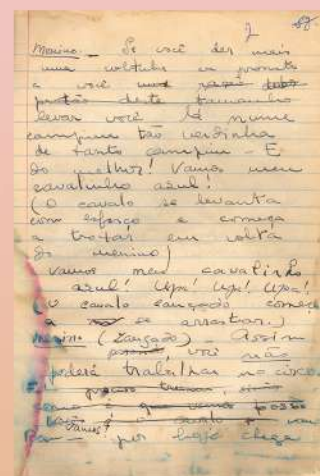 7 68.
Menino. - Se você der mais
uma voltinha eu prometo
a você
deste tamanho
levar você lá num
campim tão verdinho
de tanto campim - E
do melhor! Vamos meu
cavalinho azul!
(O cavalo se levanta
com esforço e começa
a trotar em volta
do menino)
Vamos meu cavalinho
azul! Upa! Upa! Upa!
(O cavalo cansado começa
a se arrastar.)
Menino (Zangado) - Assim
você não
poderá trabalhar no circo.
preciso treinar,
como que vamos
Vamos!
por hoje chega